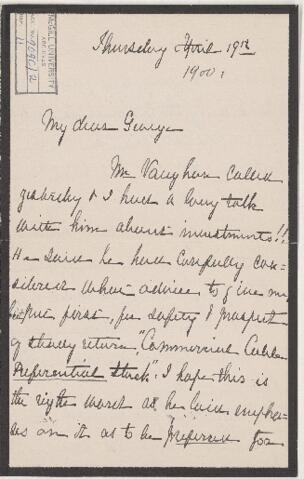 McGILL UNIVERSITY
ARCHIVES
ACC. NO. 2
Thursday April 19th
1900.
My dear George
Mr Vaughan called
yesterday & I had a long talk
with him about investments!!
He said he had carefully con-
sidered what advice to give me
put first, for safety & prospect
of steady return, "Commercial Cable
Preferential Stock". I hope this is
the right word as he laid empha-
sis on it as to be preferred for